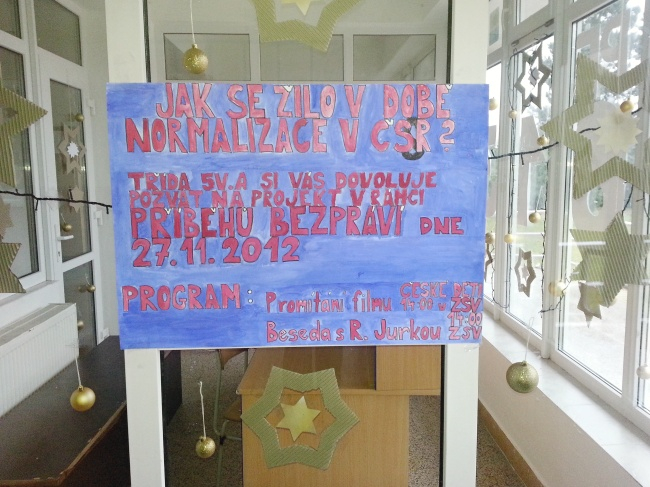 JAK SE ŽILO V DOBĚ
NORMALIZACE V ČSR ?
TŘÍDA 5V.A SI VÁS DOVOLUJE
POZVAT NA PROJEKT V RÁMCI
PŘÍBĚHŮ BEZPRÁVÍ DNE
27.11.2012
PROGRAM: Promítání filmu ČESKÉ DĚTI
V ZSV
14:00
Beseda s R. Jurkou ZSV